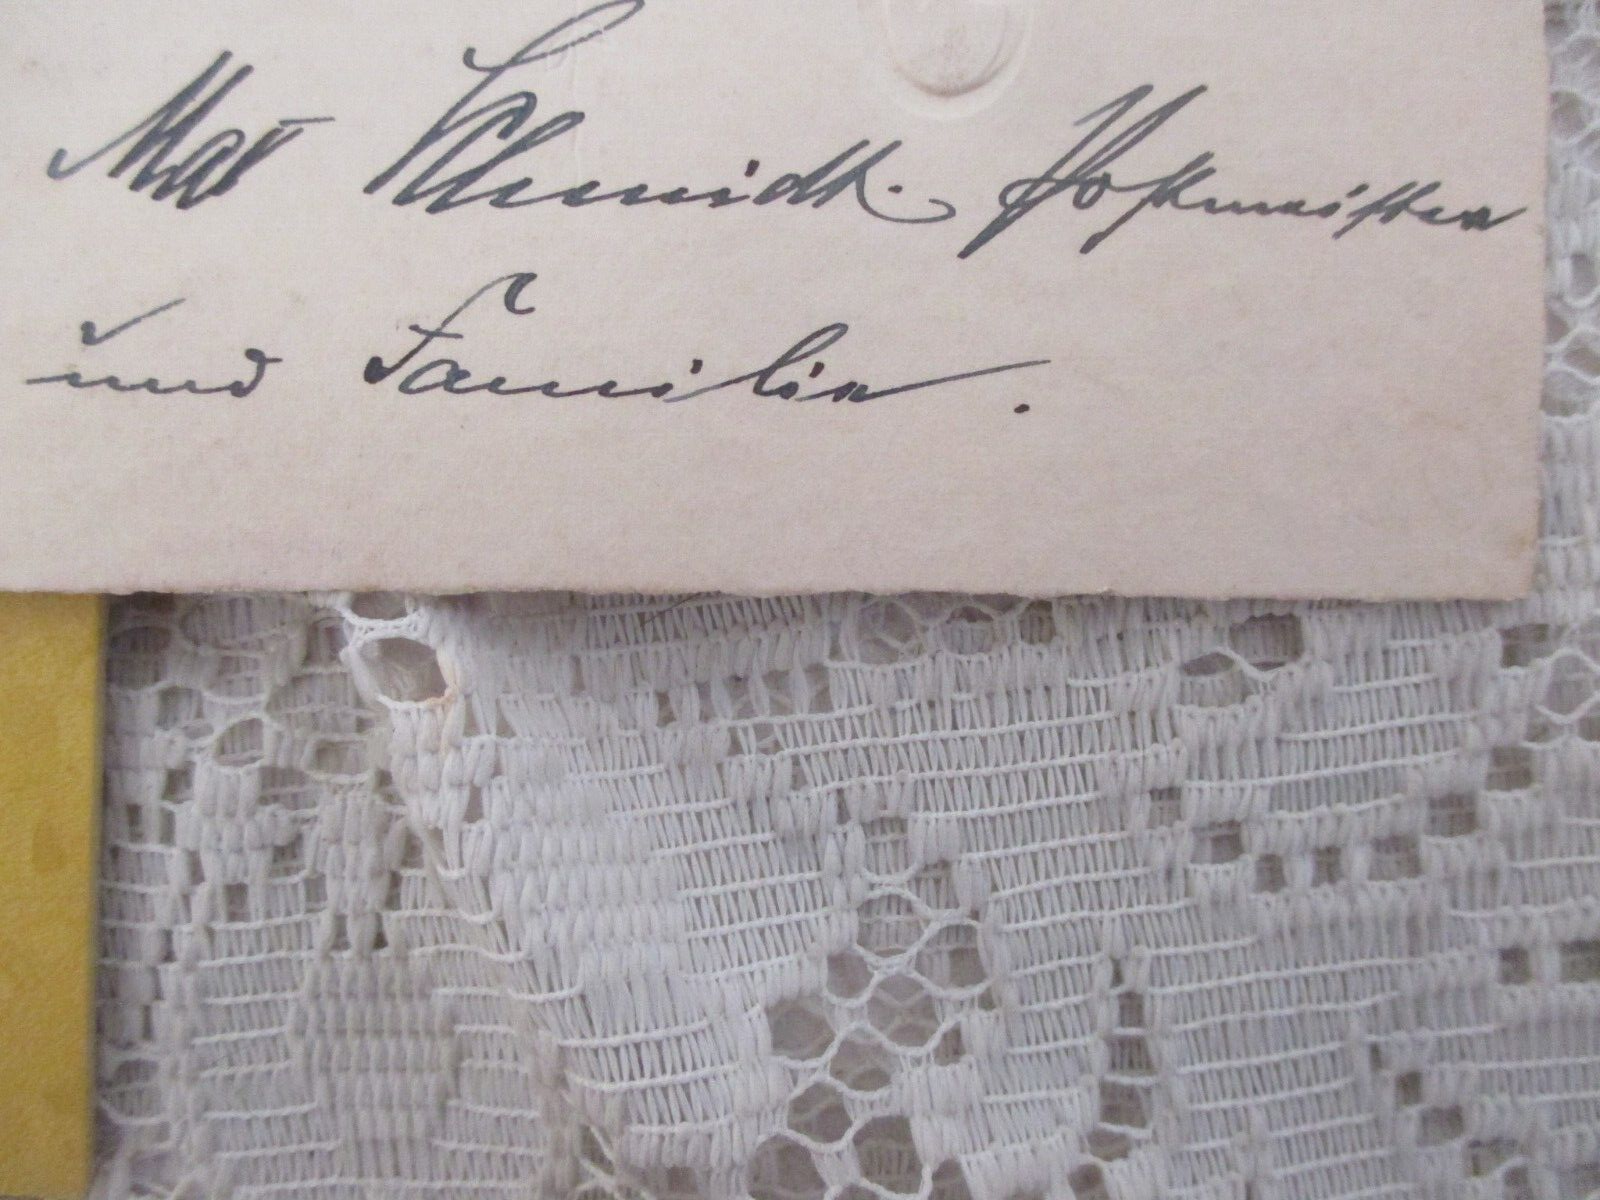 Max Schmidt. Postmeister
und Familie.